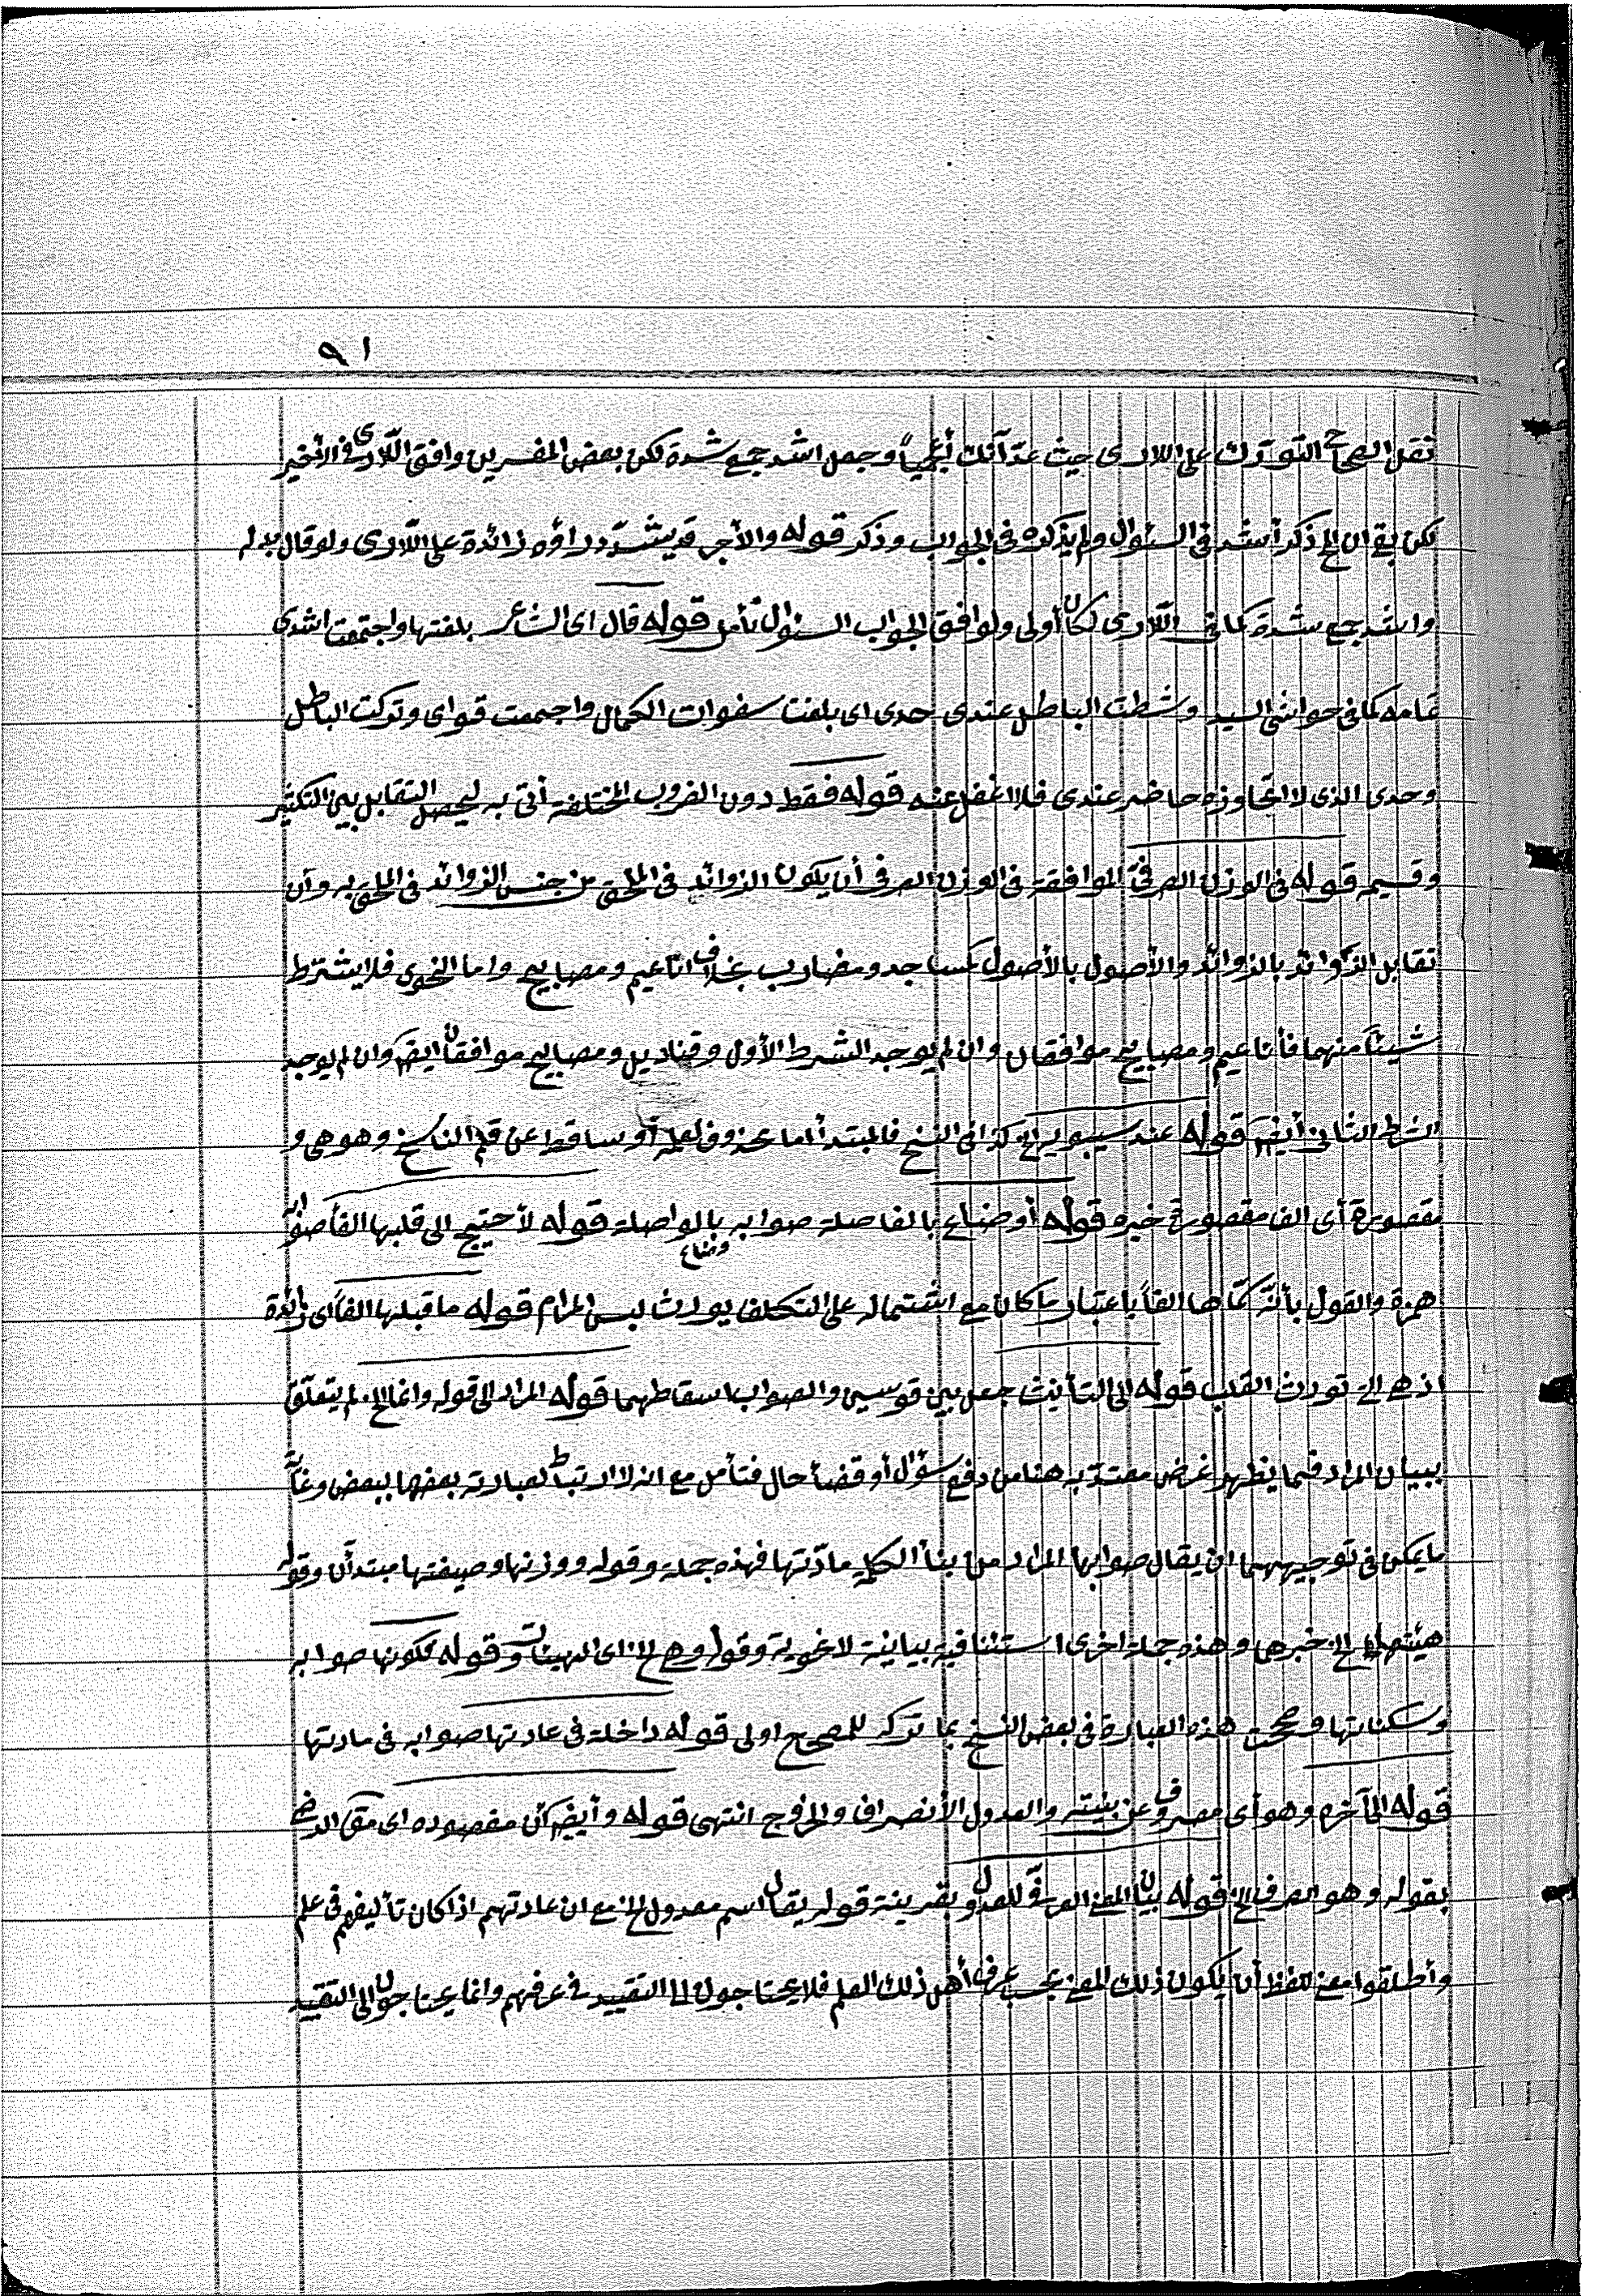 ٩١
نقل الصحاح التورك على اللارى حيث عدّ آنك أعجمياً وجعل اشد جمع شدة لكن بعض المفسرين وافق اللّارى فى الأخير
لكن بقى ان لم ذكر أشد فى السؤال ولم يذكره فى الجواب وذكر قوله والأجر قد يشدّد راؤه زائدة على اللّارى ولو قال بدله
واشد جمع شدة كما فى اللّارى لكان أولى ولوافق الجواب السؤال تأمل قوله قال اى الشاعر بلغتها واجتمعت اشدى
تمامه كما فى حواشى السيد وشطت الباطل عندى حدى اى بلغت سنوات الكمال واجتمعت قواى وتركت الباطل
وحدى الذى لا اتجاوزه حاضر عندى فلا اغفل عنه قوله فقط دون الضروب المختلفة أتى به ليحصل التقابل بين التكثير
وقسيمه قوله فى الوزن الصرفىّ الموافقة فى الوزن الصرفى أن يكون الزوائد فى الملحق من جنس الزوائد فى الملحق به وأن
تقابل الزوائد بالزوائد والأصول بالأصول كمساجد ومضارب بخلاف اناعيم ومصابيح واما النحوى فلا يشترط
شيئاً منهما فأناعيم ومصابيح موافقان وان لم يوجد الشرط الأول وقناديل ومصابيح موافقان ايضم وان لم يوجد
الشرط الثانى أيضم قوله عند سيبويه الخ كذا فى النسخ فالمبتدأ اما محذوف لعلمه أو ساقط عن قلم الناسخ وهو هى و
مقصورة أى الف مقصورة خبره قوله أوضناع بالفاصلة صوابه وضناع بالواصلة قوله لأحتيج الى قلبها الفأ صوابه
همزة والقول بأنّه سمّاها الفاً باعتبار ما كان مع اشتماله على التكلف يورث لبس المرام قوله ما قبلها الفاً اى زائدة
اذ هى التى تورث القلب قوله الى التأنيث جعل بين قوسين والصواب اسقاطهما قوله المراد الى قوله وانما الخ لم يتعلّق
ببيان المراد فيما يظهر غرض معتدّ به هنا من دفع سؤال أو قضأ حال فتأمل مع انه لا ارتباط لعبارته بعضها ببعض وغاية
ما يمكن فى توجيههما ان يقال صوابها المراد من بنأ الكلمة مادّتها فهذه جملة وقوله ووزنها وصيغتها مبتدأن وقوله
هيئتها الخ خبرهما وهذه جملة اخرى استئنافية بيانية لا نحوية وقوله وهى الخ اى الهيئات وقوله لكونها صوابه
وسكناتها وصحت هذه العبارة فى بعض النسخ بما تركه للصحيح اولى قوله داخلة فى عادتها صوابه فى مادتها
قوله الى آخره وهو أى مصروف عن بنيته والعدول الأنصراف والخروج انتهى قوله وأيضم كأن مقصوده اى مق الرضى
بقوله وهو الصرف الخ قوله بيان المعنى العرفىّ للعدل وبقرينة قوله يقال اسم معدول الخ مع ان عادتهم اذا كان تأليفهم فى علم
وأطلقوا معنى للفظ أن يكون ذلك المعنى بحسب عرف أهل ذلك العلم فلا يحتاجون الى التقييد فى عرفهم وانما يحتاجون الى التقييد